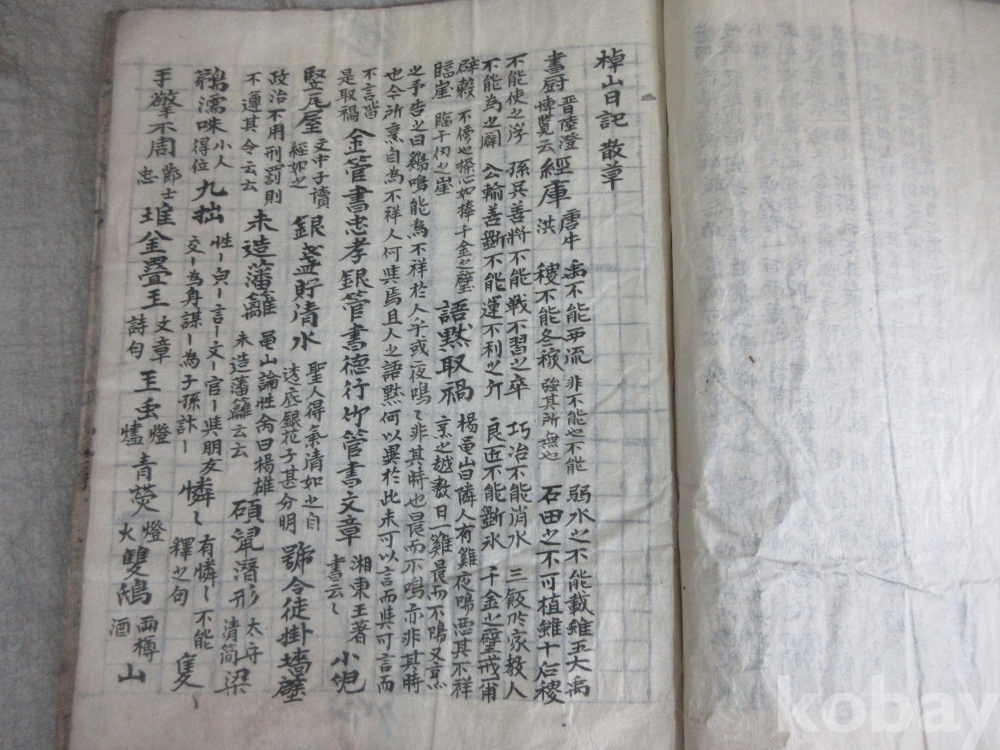 棹山日記 散草
書厨 晋陸澄 博覽云 經庫 唐牛洪 禹不能西流 稷不能冬稼 非不能也不能 强其所無也 弱水之不能載雖五大禹 石田之不可植雖十后稷
不能使之浮 孫吳善將不能戰不習之卒 巧冶不能消水 三飯於家救人
不能為之 公輸善斲不能運不利之斤 良匠不能斲氷 千金之璧戒
不傍也操心如捧千金之璧
臨崖 臨千仞之崖 語默取禍 楊龜山曰隣人有雞夜鳴惡其不祥
烹之越數日一雞晨而不鳴又烹
之予告之曰鷄鳴能為不祥於人乎或夜鳴〻非其時也晨而不鳴亦非其時
也今所烹自為不祥人何與焉且人之語默何以異於此未可以言而與可言而
不言皆是取禍 金管書忠孝銀管書德行竹管書文章 湘東王著書云〻 小
竪尾屋 文中子讀經如之 銀盞貯清水 聖人得氣清如之自透底銀花子甚分明 號令徒掛墻壁
政治不用刑罰則不運其令云云 未造藩籬 龜山論性禽曰楊雄未造藩籬云云 碩鼠潛形 太守清簡 梁
鵜濡咮 小人得位 九拙 性〡貞〡言〡文〡官〡與朋友交〡為身謀〡為子孫計〡 憐〻 有憐〻不能釋之句 隻〻
手擎不周 鄭士忠 堆金疊玉 文章詩句 玉虫 燈爐 青熒 燈火 雙鴻 兩樽酒 山
kobay